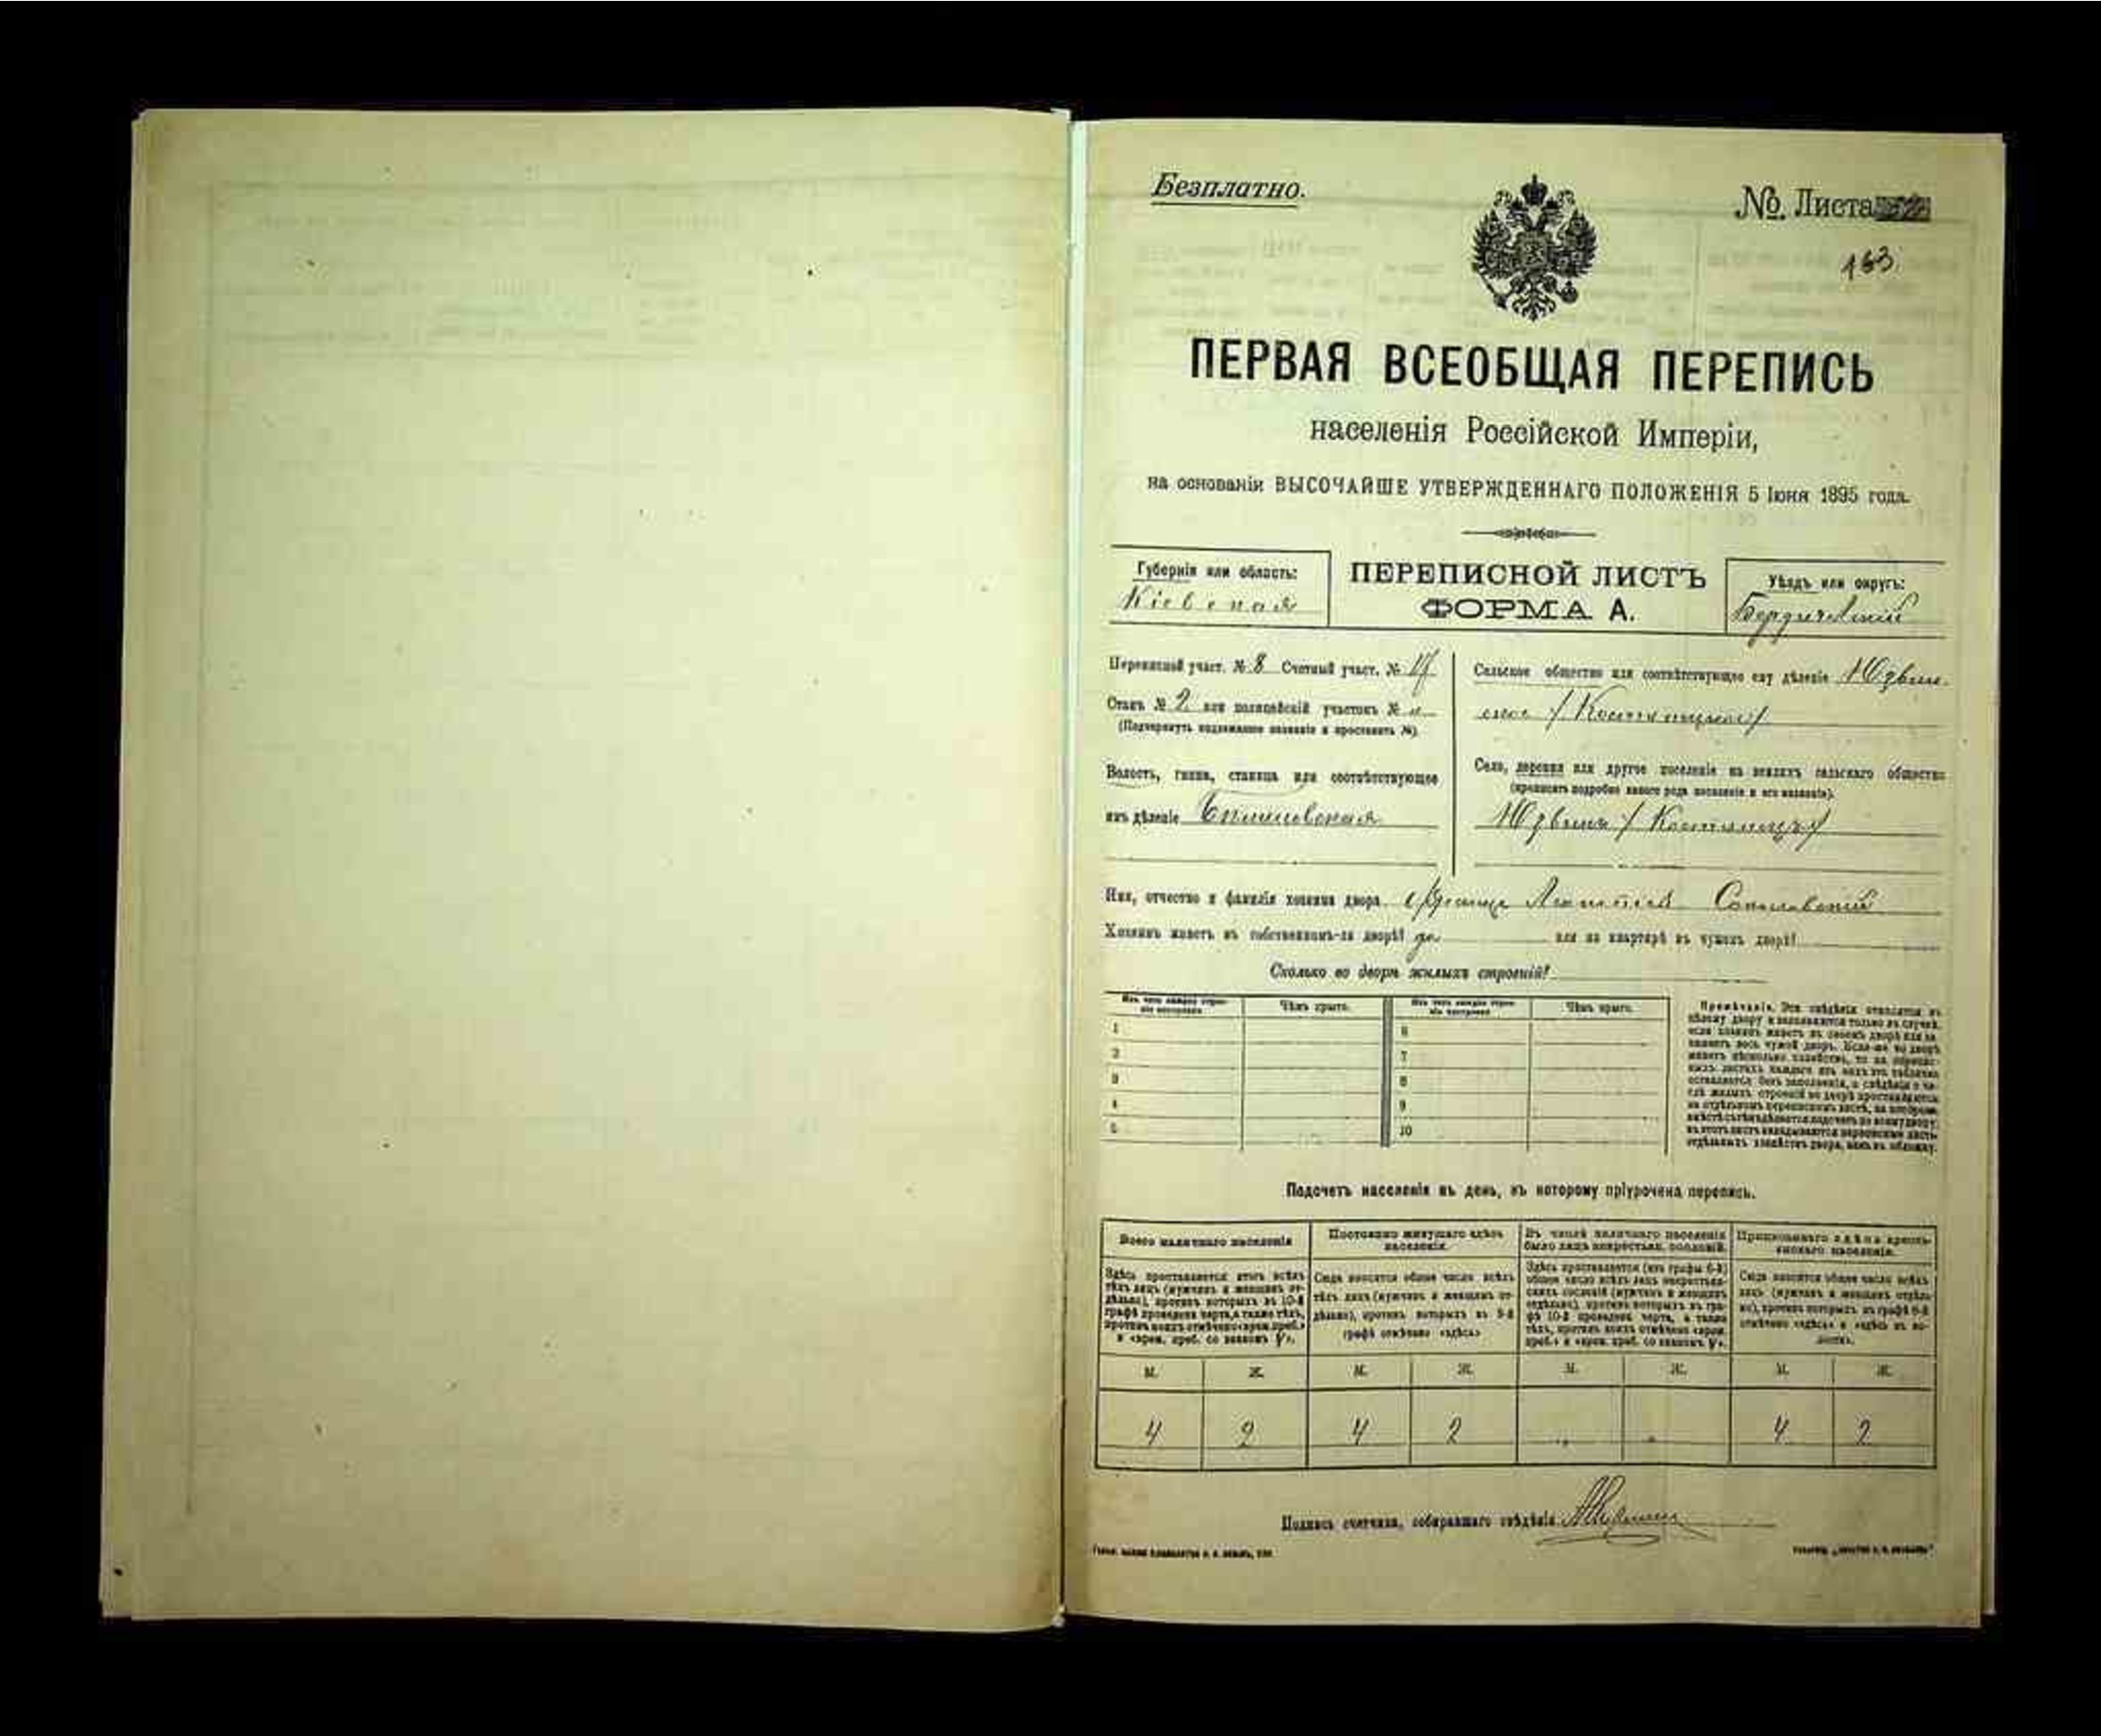 Безплатно.
№. Листа
163.
ПЕРВАЯ ВСЕОБЩАЯ ПЕРЕПИСЬ
населенія Россійской Имперіи,
на основаніи ВЫСОЧАЙШЕ УТВЕРЖДЕННАГО ПОЛОЖЕНІЯ 5 Іюня 1895 года.
Губернія или область:
Кіевская
ПЕРЕПИСНОЙ ЛИСТЪ
ФОРМА А.
Уѣздъ или округъ:
Бердичевскій
Переписной участ. № 8 Счетный участ. №
Станъ № 2 или полицейскій участокъ №
(Подчеркнуть надлежащее названіе и проставить №).
Волость, гмина, станица или соотвѣтствующее
имъ дѣленіе
Сельское общество или соотвѣтствующее ему дѣленіе
Село, деревня или другое поселеніе на земляхъ сельскаго общества
(прописать подробно какого рода поселеніе и его названіе).
Имя, отчество и фамилія хозяина двора
Хозяинъ живетъ въ собственномъ-ли дворѣ? да или на квартирѣ въ чужомъ дворѣ?
Сколько во дворѣ жилыхъ строеній?
Изъ чего каждое строеніе построено
Чѣмъ крыто.
Изъ чего каждое строеніе построено
Чѣмъ крыто.
1
2
3
4
5
6
7
8
9
10
Примѣчаніе. Эти свѣдѣнія относятся къ
цѣлому двору и заполняются только въ случаѣ,
если хозяинъ живетъ въ своемъ дворѣ или за-
нимаетъ весь чужой дворъ. Если-же во дворѣ
живетъ нѣсколько хозяйствъ, то на перепис-
ныхъ листахъ каждаго изъ нихъ эта табличка
оставляется безъ заполненія, а свѣдѣнія о чи-
слѣ жилыхъ строеній во дворѣ проставляются
на отдѣльномъ переписномъ листѣ, на которомъ
въ этотъ листъ вкладываются переписные листы
отдѣльныхъ хозяйствъ двора, какъ въ обложку.
Подсчетъ населенія въ день, къ которому пріурочена перепись.
Всего наличнаго населенія
Постоянно живущаго здѣсь населенія.
Въ числѣ наличнаго населенія было лицъ некрестьян. сословій.
Приписаннаго здѣсь крестьянскаго населенія.
Здѣсь проставляется итогъ всѣхъ
тѣхъ лицъ (мужчинъ и женщинъ от-
дѣльно), противъ которыхъ въ 10-й
графѣ проведена черта, а также тѣхъ,
противъ коихъ отмѣчено «врем. преб.»
и «врем. преб. со знакомъ V».
Сюда вносится общее число всѣхъ
тѣхъ лицъ (мужчинъ и женщинъ от-
дѣльно), противъ которыхъ въ 9-й
графѣ отмѣчено «здѣсь»
Здѣсь проставляется (изъ графы 6-й)
общее число всѣхъ лицъ некрестьян-
скихъ сословій (мужчинъ и женщинъ
отдѣльно), противъ которыхъ въ гра-
фѣ 10-й проведена черта, а также
тѣхъ, противъ коихъ отмѣчено «врем.
преб.» и «врем. преб. со знакомъ V».
Сюда вносится общее число всѣхъ
лицъ (мужчинъ и женщинъ отдѣль-
но), противъ которыхъ въ графѣ 8-й
отмѣчено «здѣсь» и «здѣсь въ во-
лости».
М. Ж. М. Ж. М. Ж. М. Ж.
4 2 4 2 4 2
Подпись счетчика, собиравшаго свѣдѣнія